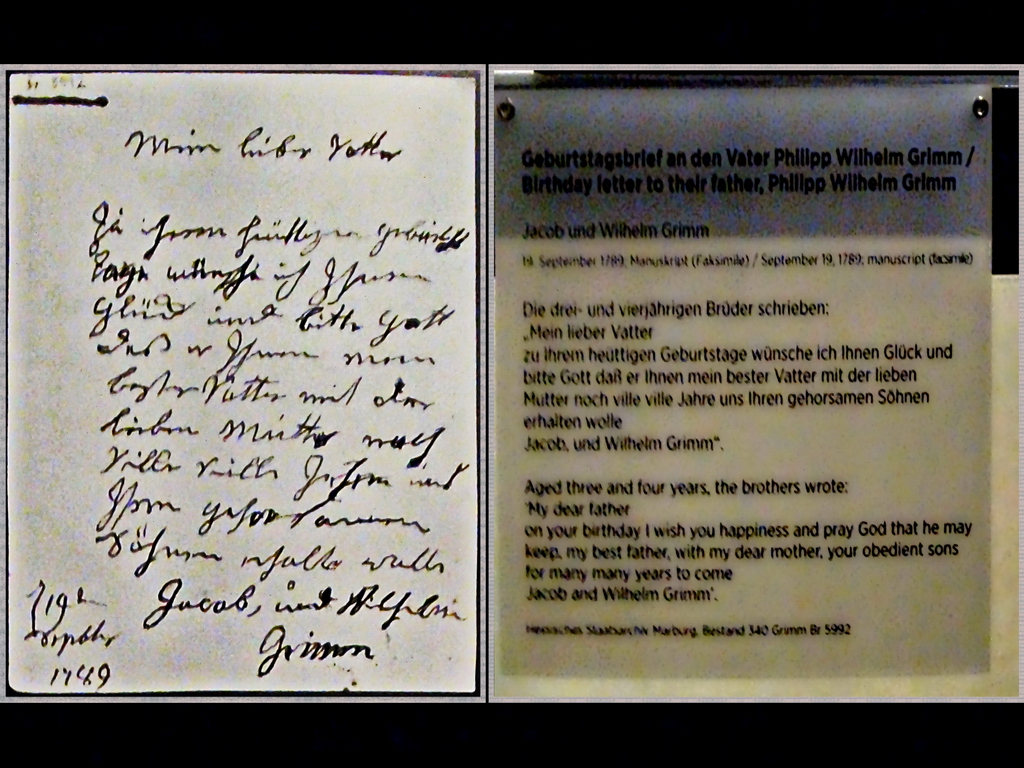 Br 5992
Mein lieber Vatter
Zu ihrem heuttigen geburts
tage wünsche ich Ihnen
Glück und bitte Gott
daß er Ihnen mein
bester Vatter mit der
lieben Mutter noch
ville ville Jahre uns
Ihren gehorsamen
Söhnen erhalte wolle
Jacob, und Wilhelm
Grimm
19
1789
Geburtstagsbrief an den Vater Philipp Wilhelm Grimm /
Birthday letter to their father, Philipp Wilhelm Grimm
Jacob und Wilhelm Grimm
19. September 1789; Manuskript (Faksimile) / September 19, 1789; manuscript (facsimile)
Die drei- und vierjährigen Brüder schrieben:
„Mein lieber Vatter
zu Ihrem heuttigen Geburtstage wünsche ich Ihnen Glück und
bitte Gott daß er Ihnen mein bester Vatter mit der lieben
Mutter noch ville ville Jahre uns Ihren gehorsamen Söhnen
erhalten wolle
Jacob, und Wilhelm Grimm“.
Aged three and four years, the brothers wrote:
'My dear father
on your birthday I wish you happiness and pray God that he may
keep, my best father, with my dear mother, your obedient sons
for many many years to come
Jacob and Wilhelm Grimm'.
Hessisches Staatsarchiv Marburg, Bestand 340 Grimm Br 5992